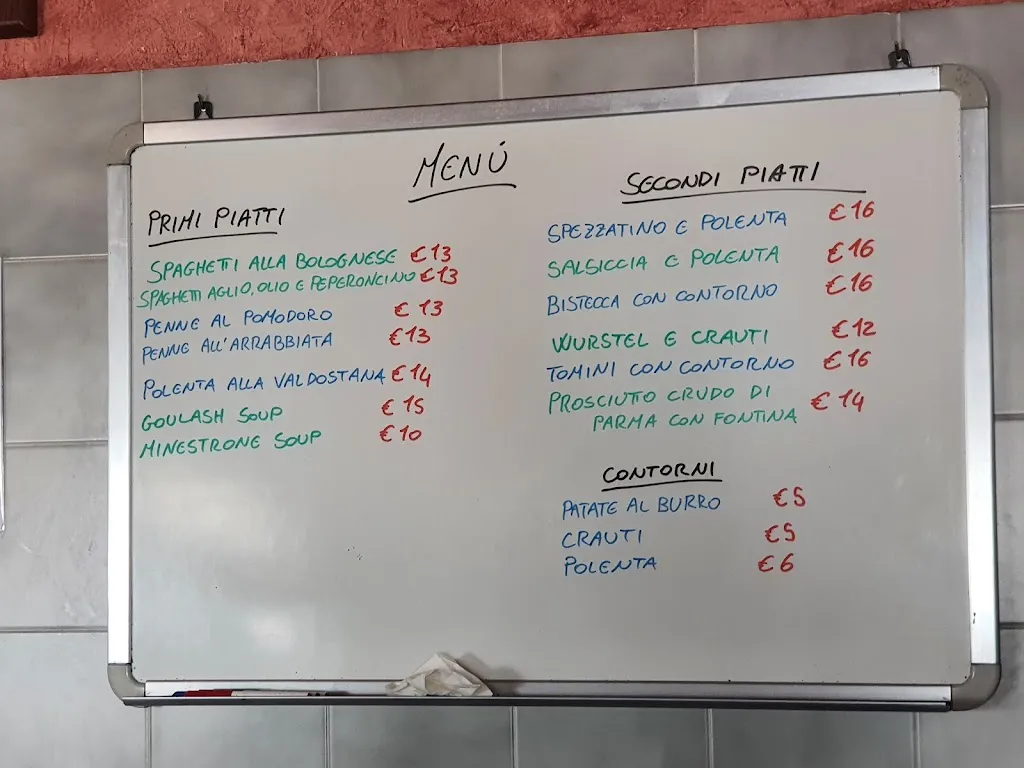 MENÚ
PRIMI PIATTI
SPAGHETTI ALLA BOLOGNESE €13
SPAGHETTI AGLIO, OLIO E PEPERONCINO €13
PENNE AL POMODORO €13
PENNE ALL'ARRABBIATA €13
POLENTA ALLA VALDOSTANA €14
GOULASH SOUP €15
MINESTRONE SOUP €10
SECONDI PIATTI
SPEZZATINO E POLENTA €16
SALSICCIA E POLENTA €16
BISTECCA CON CONTORNO €16
WURSTEL E CRAUTI €12
TOMINI CON CONTORNO €16
PROSCIUTO CRUDO DI
PARMA CON FONTINA €14
CONTORNI
PATATE AL BURRO €5
CRAUTI €5
POLENTA €6